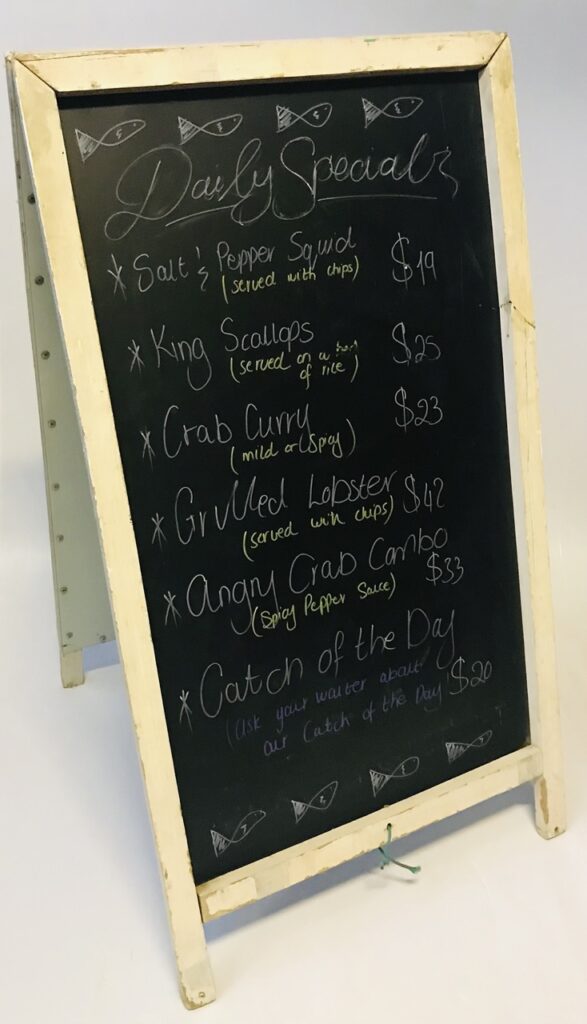 Daily Specials
* Salt & Pepper Squid $19
(served with chips)
* King Scallops $25
(served on a
of rice)
* Crab Curry $23
(mild or spicy)
* Grilled Lobster $42
(served with chips)
* Angry Crab Combo $33
(Spicy Pepper Sauce)
* Catch of the Day $20
(Ask your waiter about
our Catch of the Day)